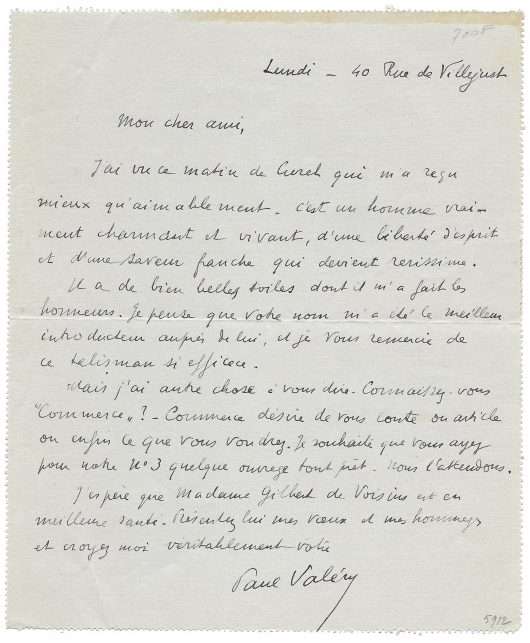 7008
Lundi – 40 Rue de Villejust
Mon cher ami,
J'ai vu ce matin de Curel qui m'a reçu
mieux qu'aimablement. C'est un homme vrai-
ment charmant et vivant, d'une liberté d'esprit
et d'une saveur franche qui devient rarissime.
Il a de bien belles toiles dont il m'a fait les
honneurs. Je pense que votre nom m'a été le meilleur
introducteur auprès de lui, et je vous remercie de
ce talisman si efficace.
Mais j'ai autre chose à vous dire. Connaissez-vous
"Commerce" ? – Commerce désire de vous conte ou article
ou enfin ce que vous voudrez. Je souhaite que vous ayez
pour notre N°3 quelque ouvrage tout prêt. Nous l'attendons.
J'espère que Madame Gilbert de Voisins est en
meilleure santé. Présentez lui mes vœux et mes hommages
et croyez moi véritablement votre
Paul Valéry
5912